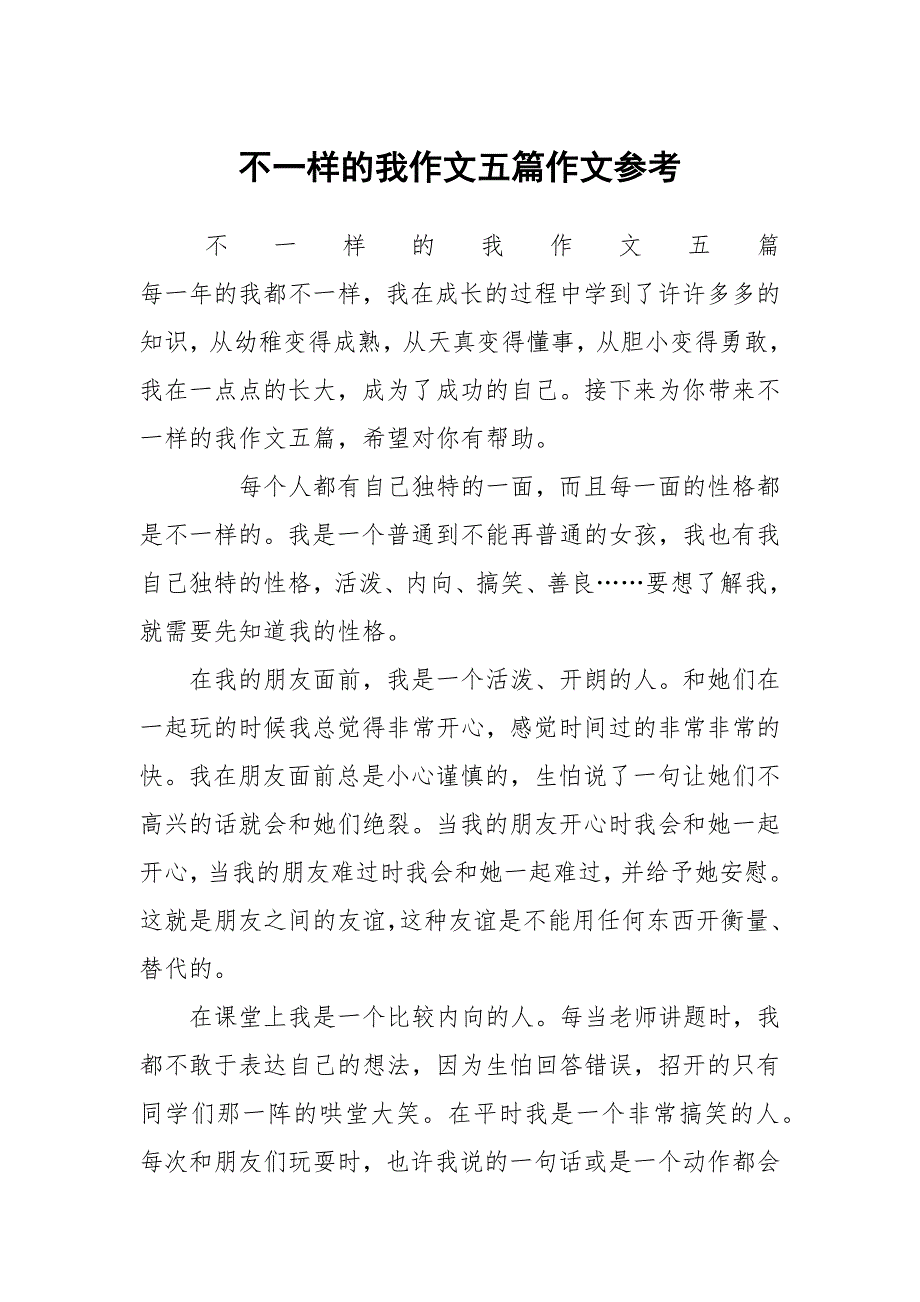 不一样的我作文五篇作文参考
不一样的我作文五篇
每一年的我都不一样，我在成长的过程中学到了许许多多的
知识，从幼稚变得成熟，从天真变得懂事，从胆小变得勇敢，
我在一点点的长大，成为了成功的自己。接下来为你带来不
一样的我作文五篇，希望对你有帮助。
每个人都有自己独特的一面，而且每一面的性格都
是不一样的。我是一个普通到不能再普通的女孩，我也有我
自己独特的性格，活泼、内向、搞笑、善良……要想了解我，
就需要先知道我的性格。
在我的朋友面前，我是一个活泼、开朗的人。和她们在
一起玩的时候我总觉得非常开心，感觉时间过的非常非常的
快。我在朋友面前总是小心谨慎的，生怕说了一句让她们不
高兴的话就会和她们绝裂。当我的朋友开心时我会和她一起
开心，当我的朋友难过时我会和她一起难过，并给予她安慰。
这就是朋友之间的友谊，这种友谊是不能用任何东西开衡量、
替代的。
在课堂上我是一个比较内向的人。每当老师讲题时，我
都不敢于表达自己的想法，因为生怕回答错误，招开的只有
同学们那一阵的哄堂大笑。在平时我是一个非常搞笑的人。
每次和朋友们玩耍时，也许我说的一句话或是一个动作都会